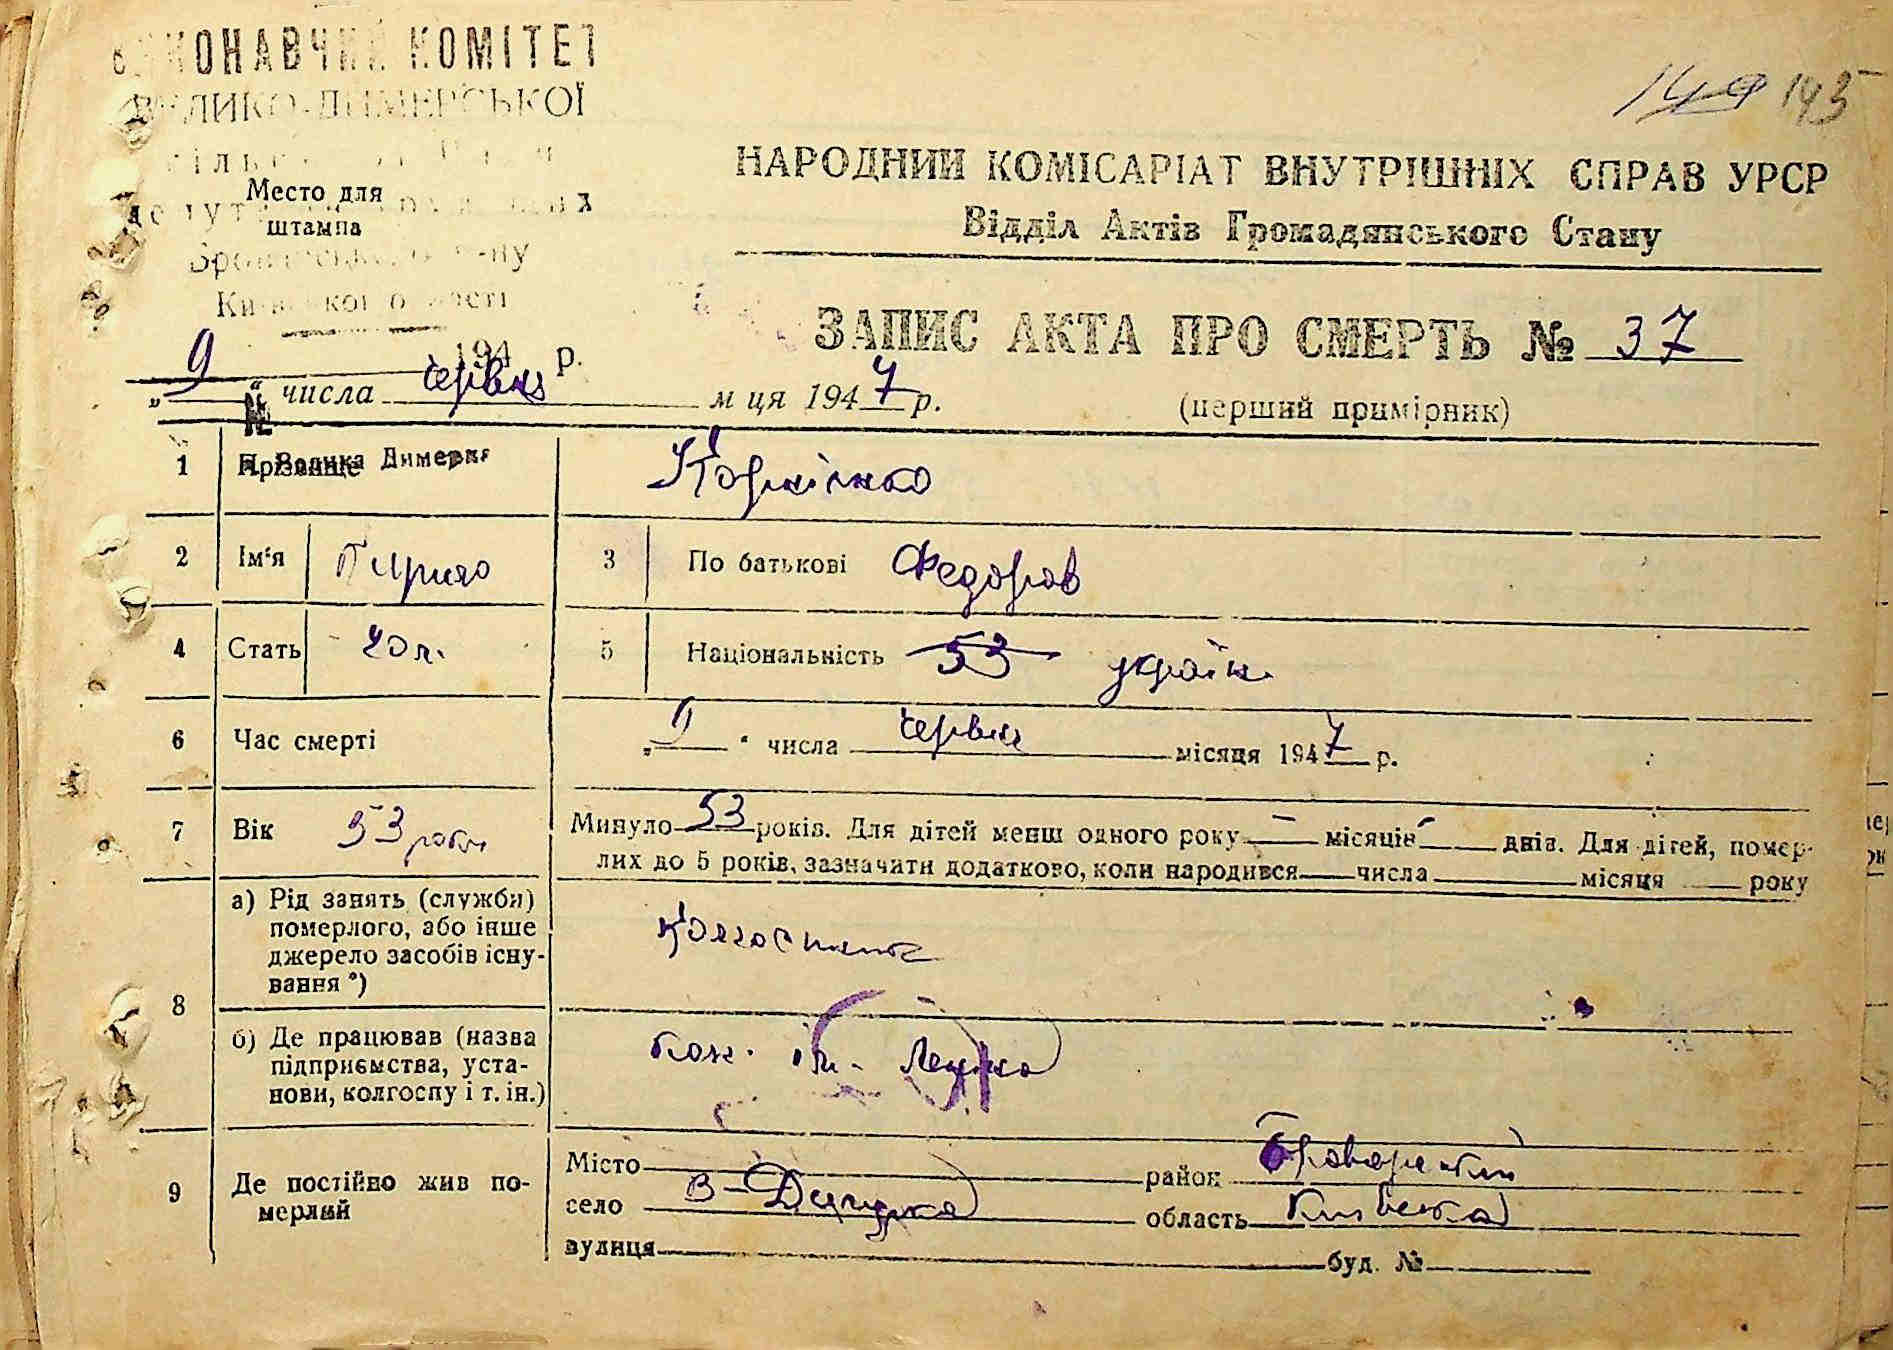 ВИКОНАВЧИЙ КОМІТЕТ
ВЕЛИКО-ДИМЕРСЬКОЇ
149 143
Место для
штампа
НАРОДНИЙ КОМІСАРІАТ ВНУТРІШНІХ СПРАВ УРСР
Відділ Актів Громадянського Стану
Київської області
ЗАПИС АКТА ПРО СМЕРТЬ № 37
194 р.
„9“ числа червня м ця 1947 р.
(перший примірник)
№
с. Велика Димерка
1 Прізвище Корнієнко
2 Ім'я Кирило 3 По батькові Федоров
4 Стать чол. 5 Національність 53 україн.
6 Час смерті „9“ числа червня місяця 1947 р.
7 Вік 53 роки Минуло 53 років. Для дітей менш одного року — місяців — днів. Для дітей, помер-
лих до 5 років, зазначити додатково, коли народився числа місяця року
8 а) Рід занять (служби)
померлого, або інше
джерело засобів існу-
вання *)
колгоспник
б) Де працював (назва
підприємства, уста-
нови, колгоспу і т. ін.)
кол. ім.
9 Де постійно жив по-
мерлий
Місто район Броварський
село В-Димерка область Київська
вулиця буд. №